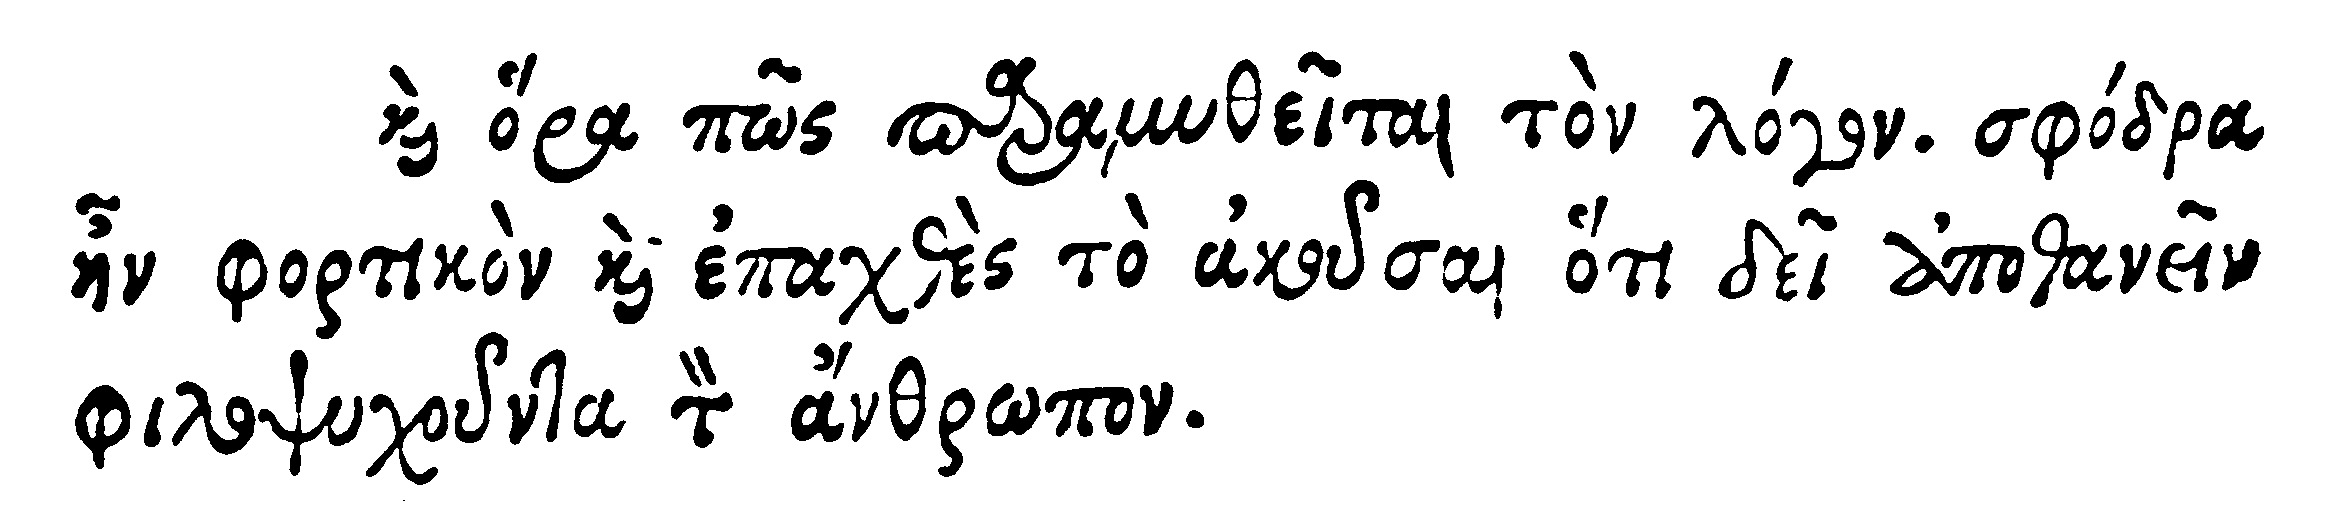 καὶ ὅρα πῶς παραμυθεῖται τὸν λόγον. σφόδρα
ἦν φορτικὸν καὶ ἐπαχθὲς τὸ ἀκοῦσαι ὅτι δεῖ ἀποθανεῖν
φιλοψυχοῦντα τὸν ἄνθρωπον.